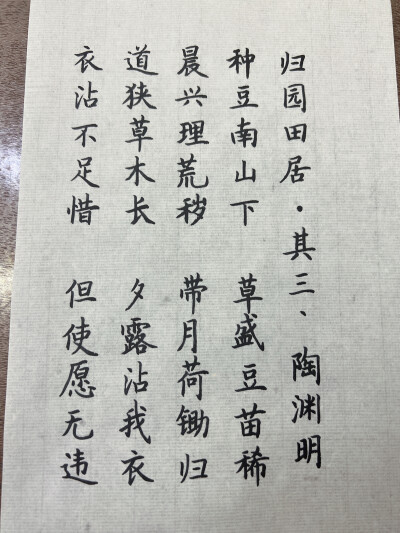 归园田居·其三、陶渊明
种豆南山下 草盛豆苗稀
晨兴理荒秽 带月荷锄归
道狭草木长 夕露沾我衣
衣沾不足惜 但使愿无违